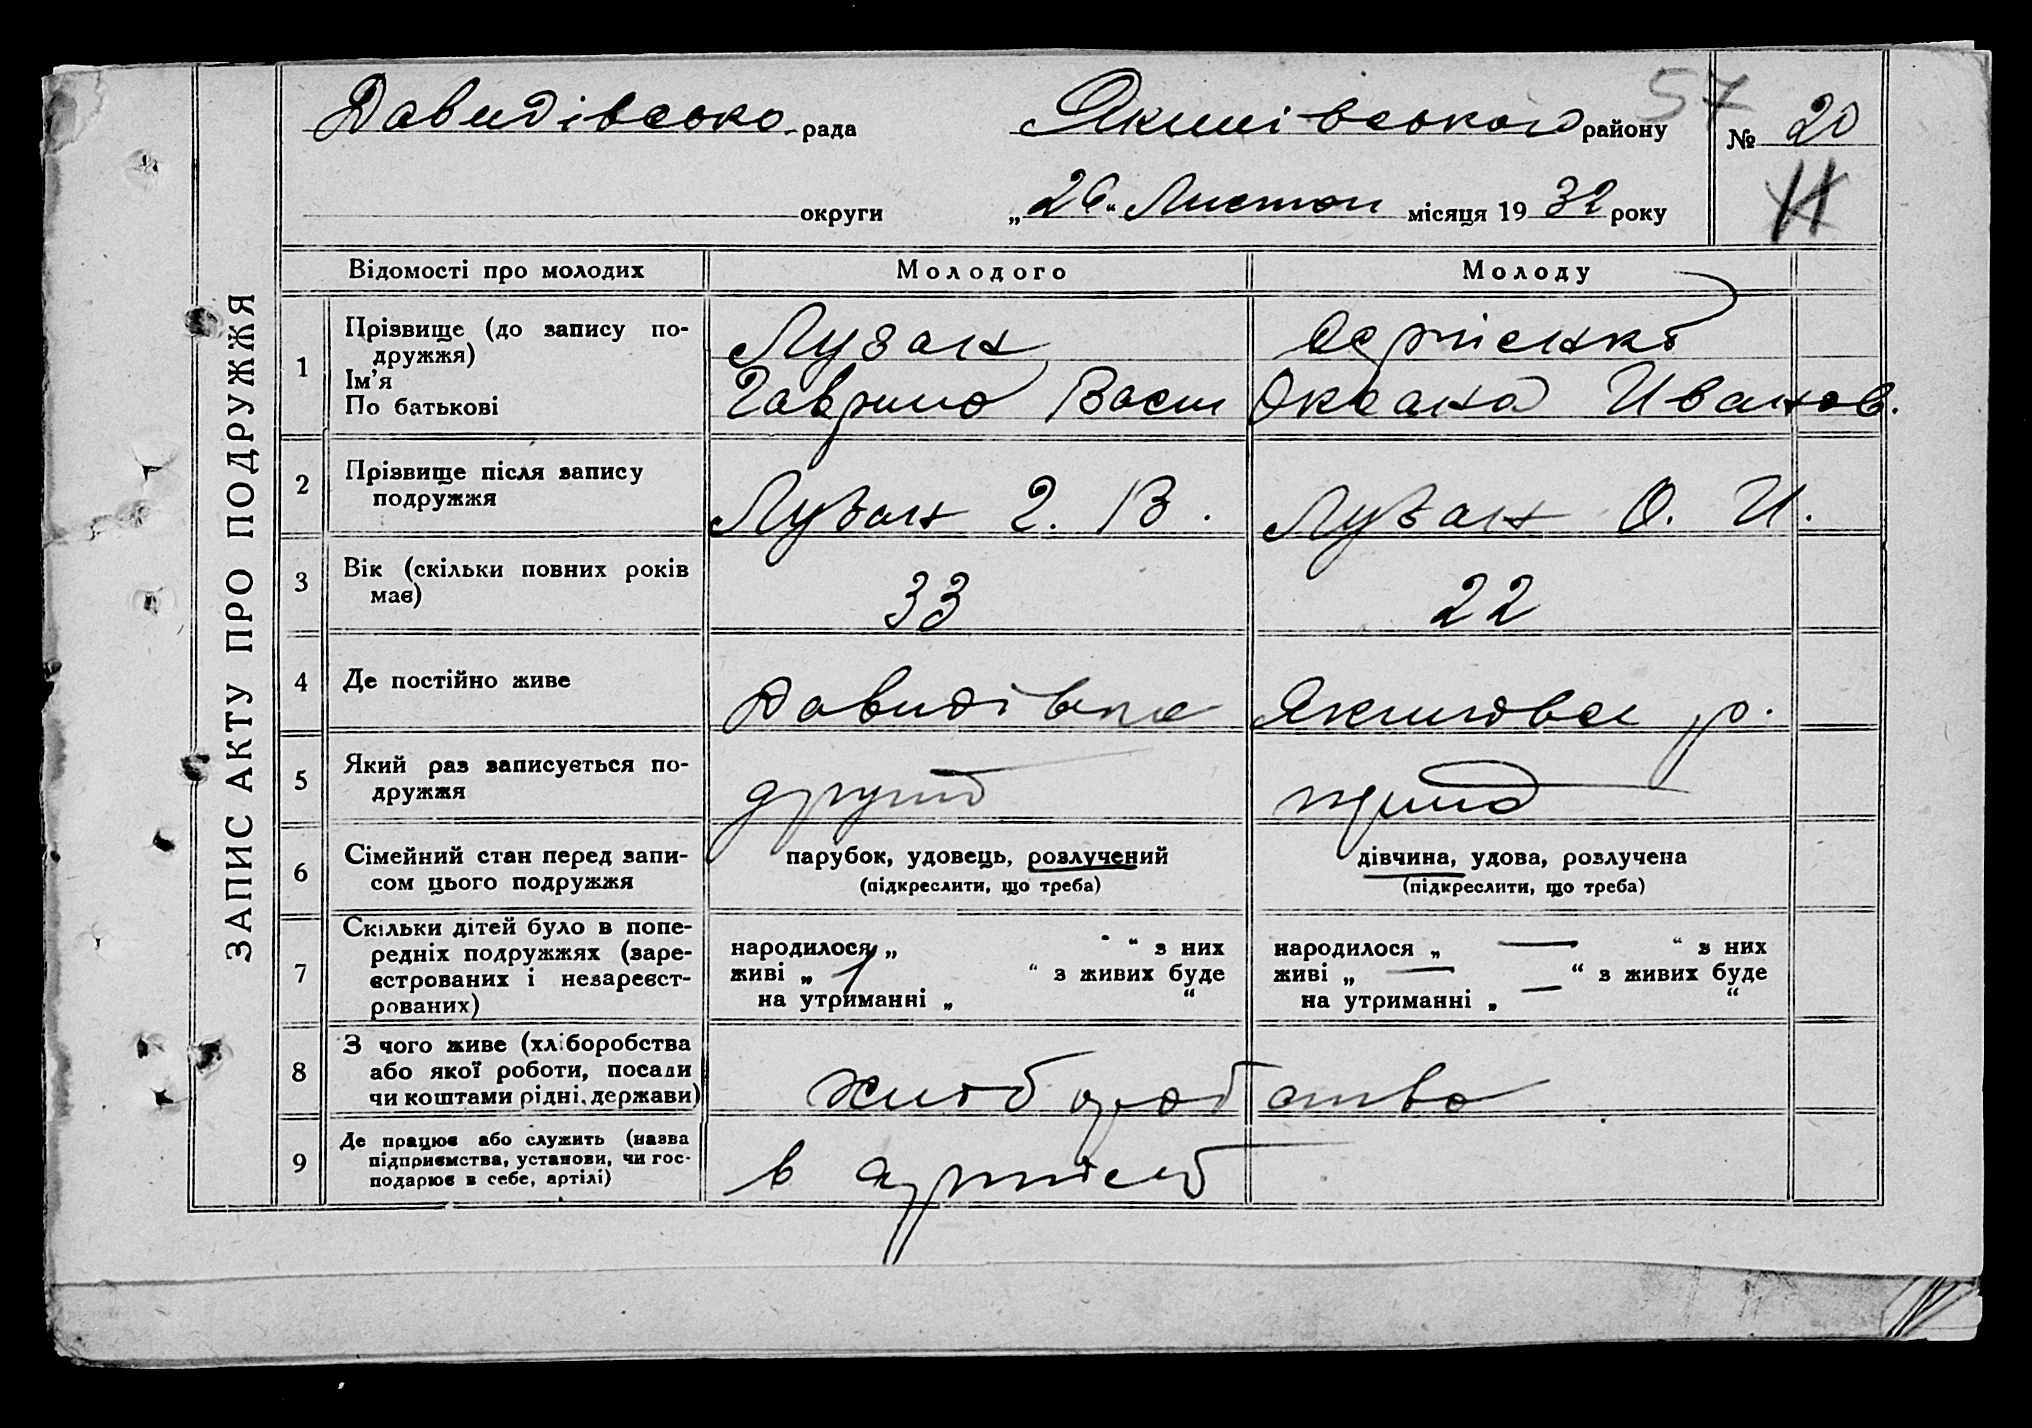 57
Давидівсько рада Якимівського району № 20
округи „26“ Листоп місяця 1932 року
11
ЗАПИС АКТУ ПРО ПОДРУЖЖЯ
Відомості про молодих Молодого Молоду
1 Прізвище (до запису по-
дружжя)
Ім'я
По батькові
Лузан
Гаврило Васил
Оксана Иванов.
2 Прізвище після запису
подружжя
Лузан Г. В. Лузан О. И.
3 Вік (скільки повних років
має)
33 22
4 Де постійно живе Давидівка р.
5 Який раз записується по-
дружжя
другий
6 Сімейний стан перед запи-
сом цього подружжя
парубок, удовець, розлучений дівчина, удова, розлучена
(підкреслити, що треба) (підкреслити, що треба)
7 Скільки дітей було в попе-
редніх подружжях (заре-
єстрованих і незареєст-
рованих)
народилося „ “ з них народилося „ — “ з них
живі „ 1 “ з живих буде живі „ — “ з живих буде
на утриманні „ “ на утриманні „ — “
8 З чого живе (хліборобства
або якої роботи, посади
чи коштами рідні, держави)
хліборобство
9 Де працює або служить (назва
підприємства, установи, чи гос-
подарює в себе, артілі)
в артілі